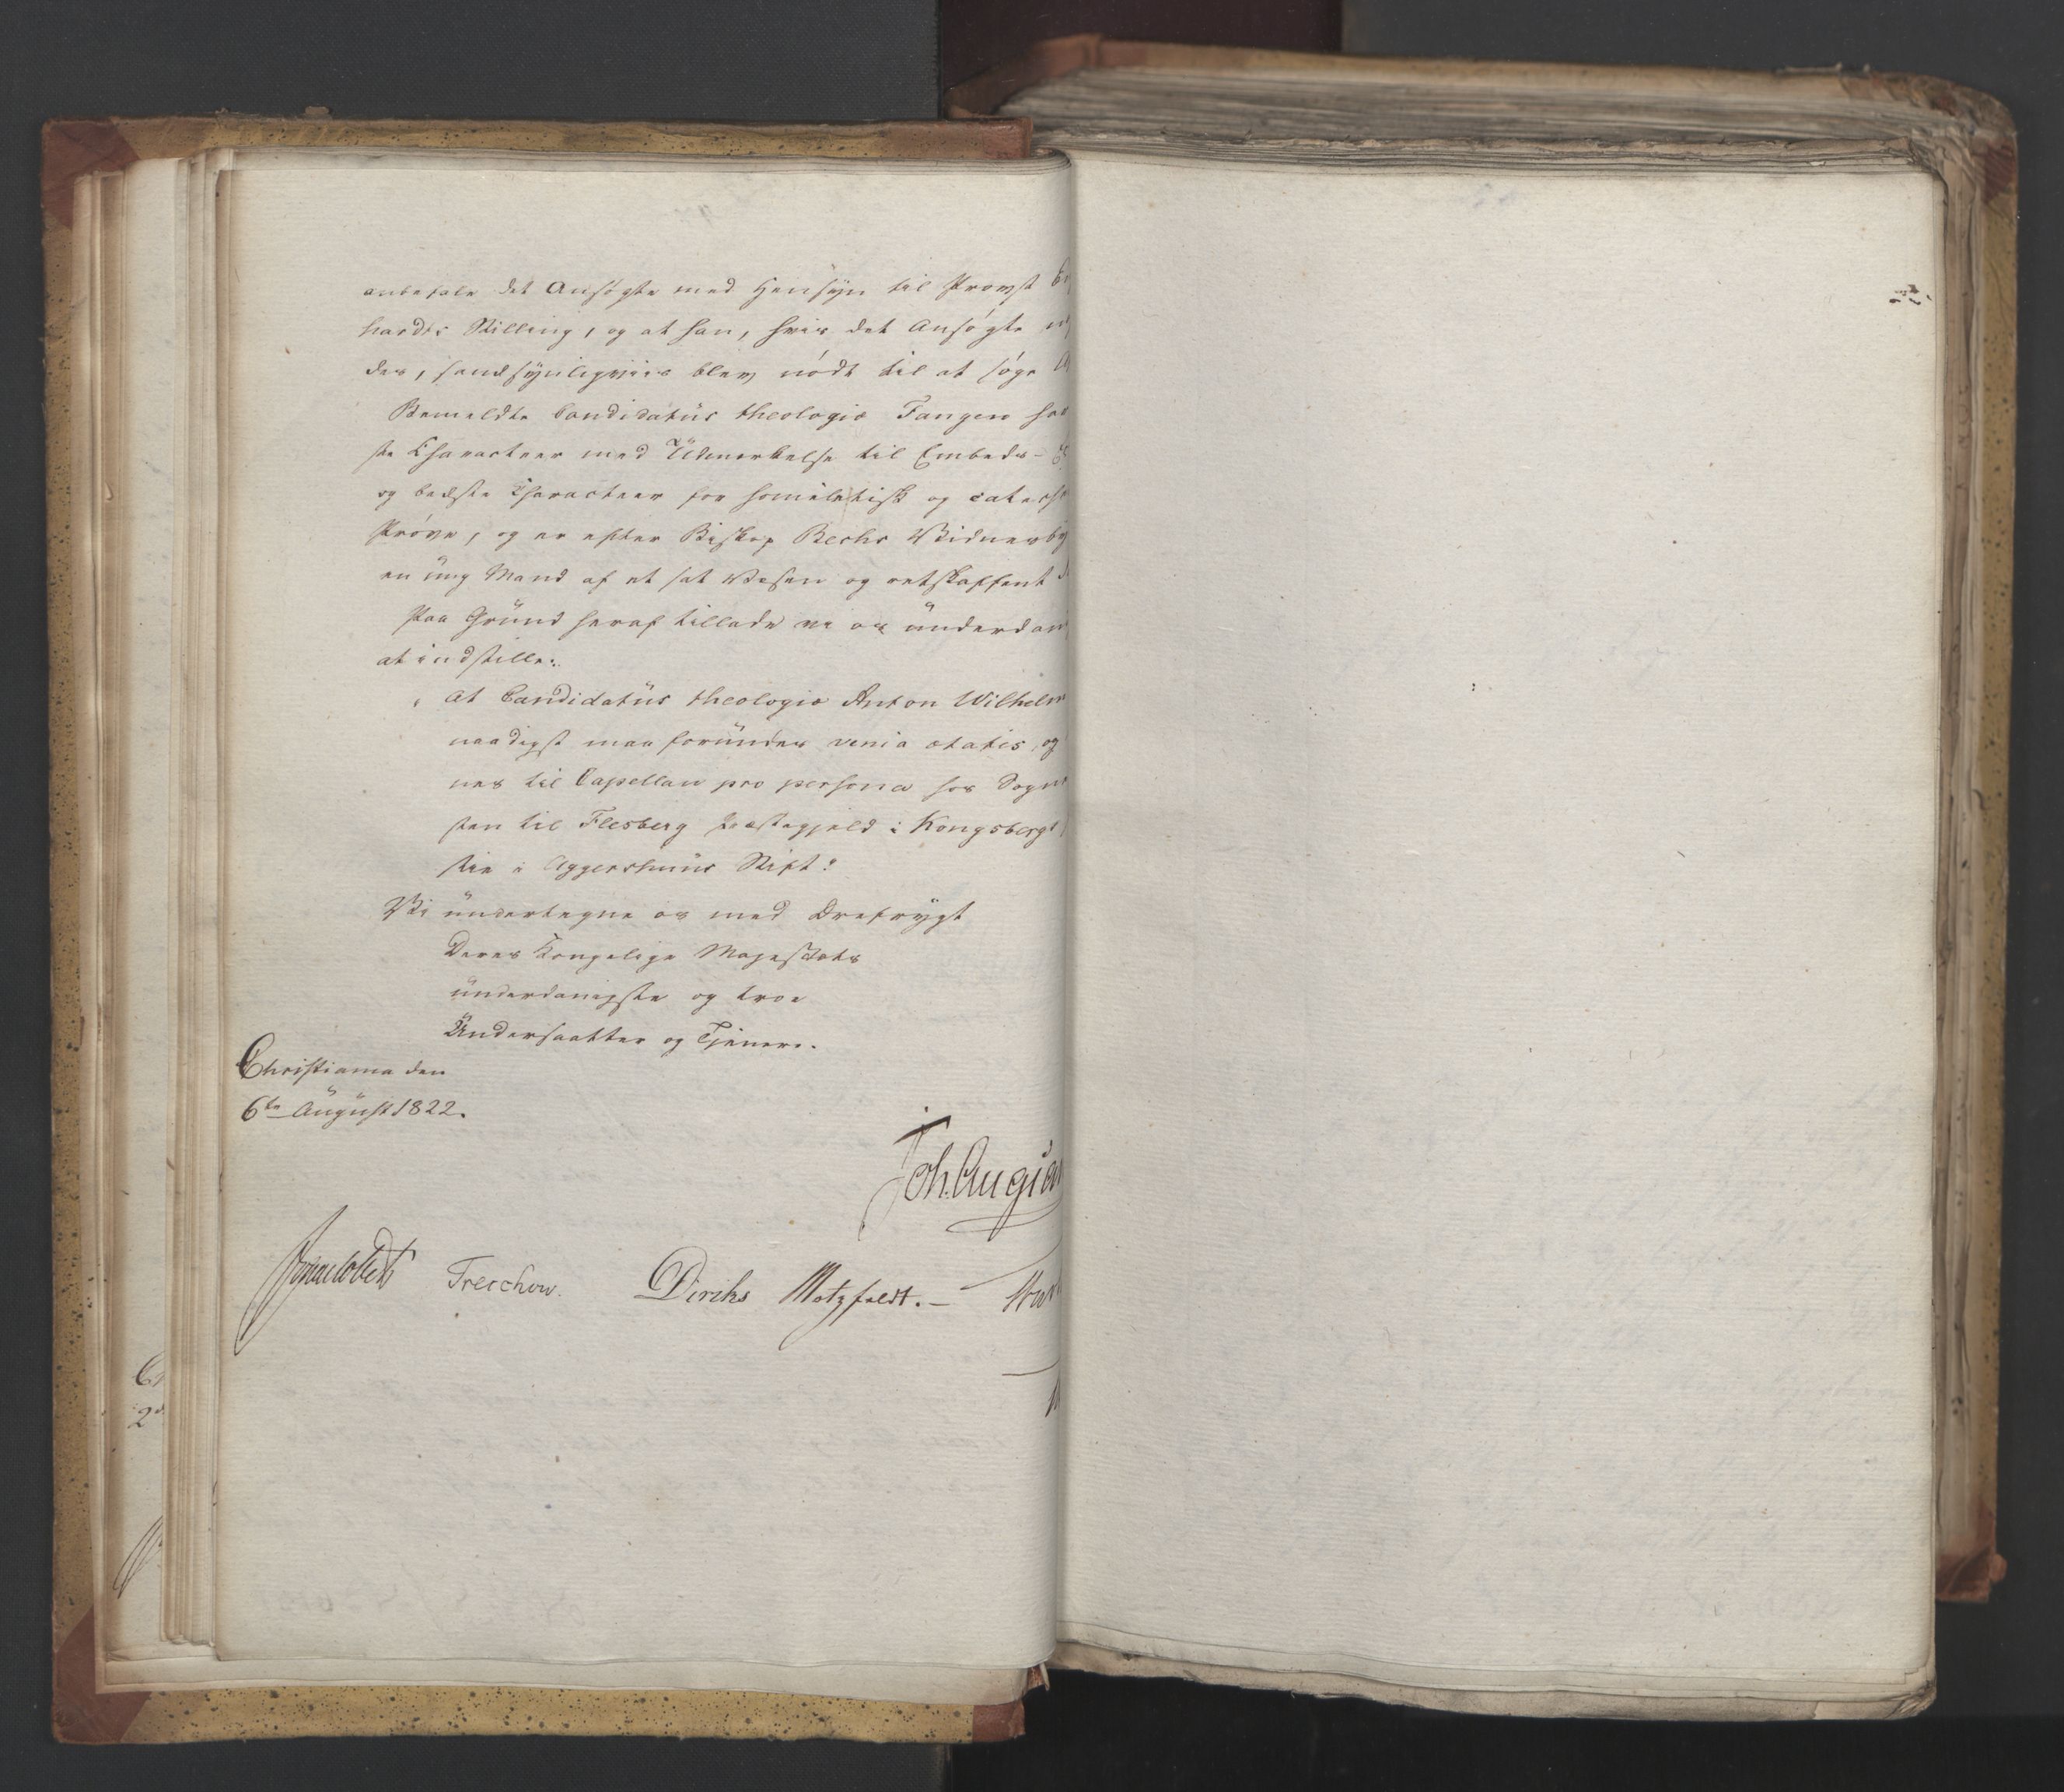 anbefale det Ansøgte med Hensyn til Provst
hardts Stilling, og at han, hvis det Ansøgte
des, sandsynligviis blev nødt til at søge
Bemeldte Candidatus theologiæ Fangen har
ste Charakteer med Udmerkelse til Embeds-
og bedste Characteer for homiletisk og catech
Prøve, og er efter Biskop Bechs Vidnesby
en ung Mand af et sat Væsen og retskaffent
Paa Grund heraf tillade vi os underdan
at indstille:
at Candidatus theologiæ Anton Wilhelm
naadigst maa forundes venia ætatis, og
nes til Capellan pro persona hos Sogne
sten til Flesberg Præstegjeld i Kongsbergs
stie i Aggershuus Stift:
Vi undertegne os med Ærefrygt
Deres Kongelige Majestæts
underdanigste og troe
Undersaatter og Tjenere.
Christiania den
6te August 1822.
Joh. Aug: San
Treschow. Diriks Motzfeldt.-